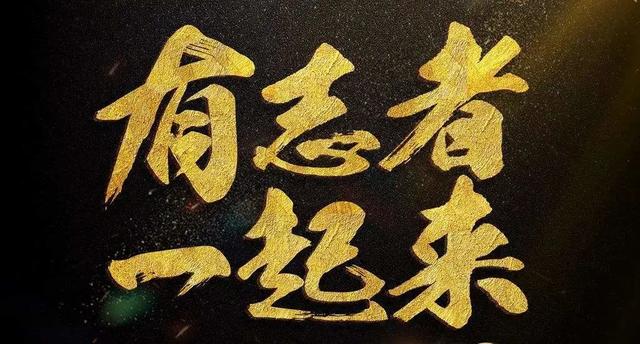 有志者
一起来